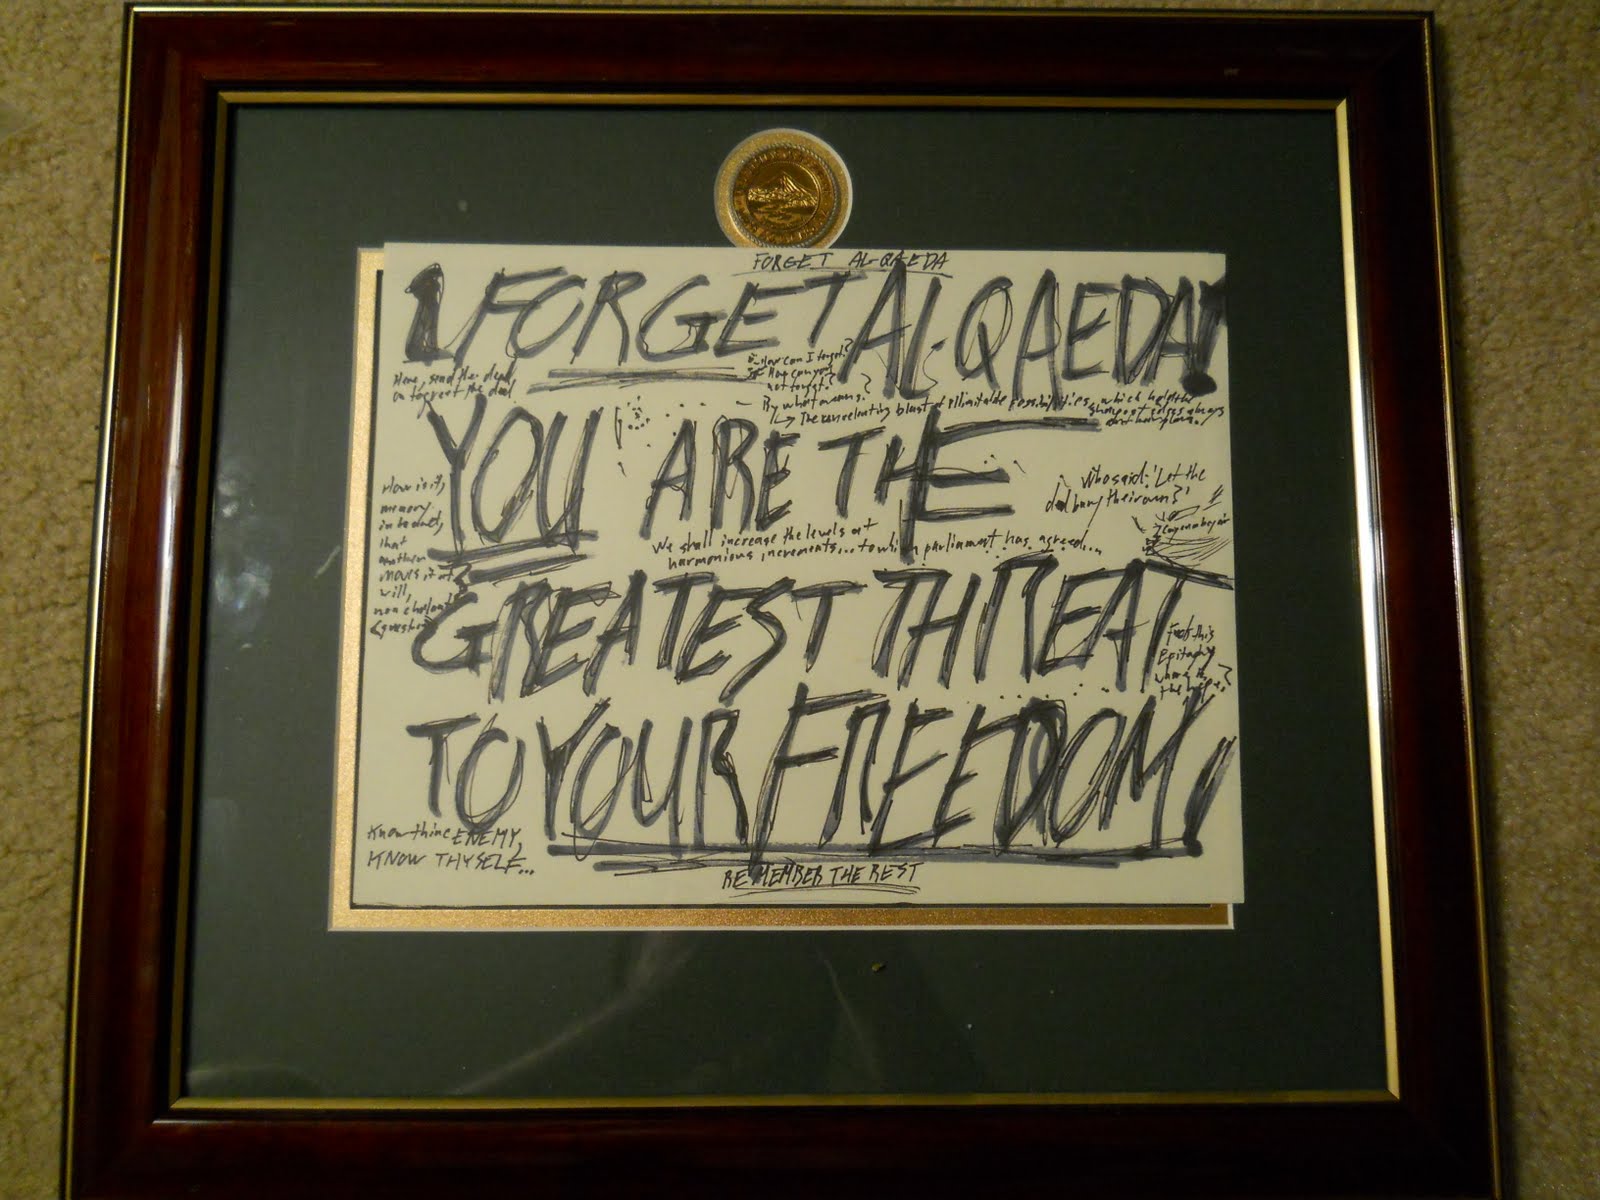 FORGET AL-QAEDA
FORGET AL-QAEDA!
Here, send the dead
on to greet the dead
How can I forget?
How can you
not forget?
By what means?
The unrelenting blast of illimitable possibilities, which help the
YOU ARE THE
Who said: 'Let the
dead bury their own?'
How is it,
memory
that
moves it at
will,
We shall increase the levels at
harmonious increments... to which parliament has agreed...
GREATEST THREAT
this
Epitaph,
TO YOUR FREEDOM!
Know thine ENEMY,
KNOW THYSELF...
REMEMBER THE REST